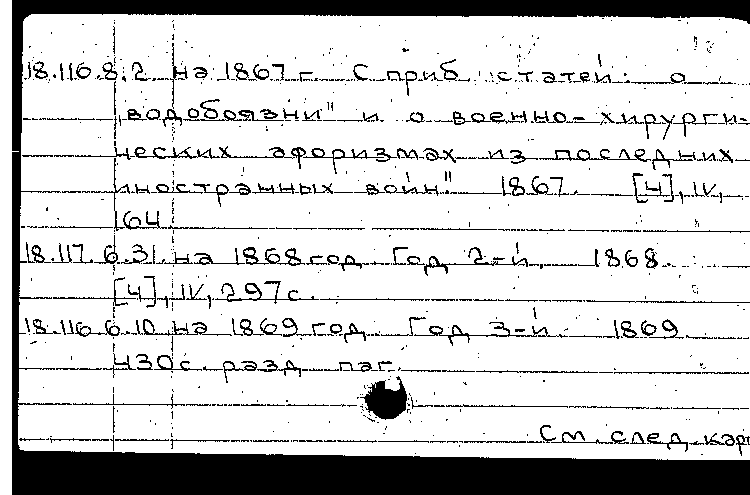 18.116.8.2 на 1867 г. С приб. статей: о
„водобоязни" и о военно-хирурги-
ческих афоризмах из последних
иностранных войн". 1867. [4], IV,
164
18.117.6.31. на 1868 год. Год 2-й. 1868.
[4], IV, 297 с.
18.116.6.10 на 1869 год. Год 3-й. 1869.
430 с. разд. паг.
См. след. карт